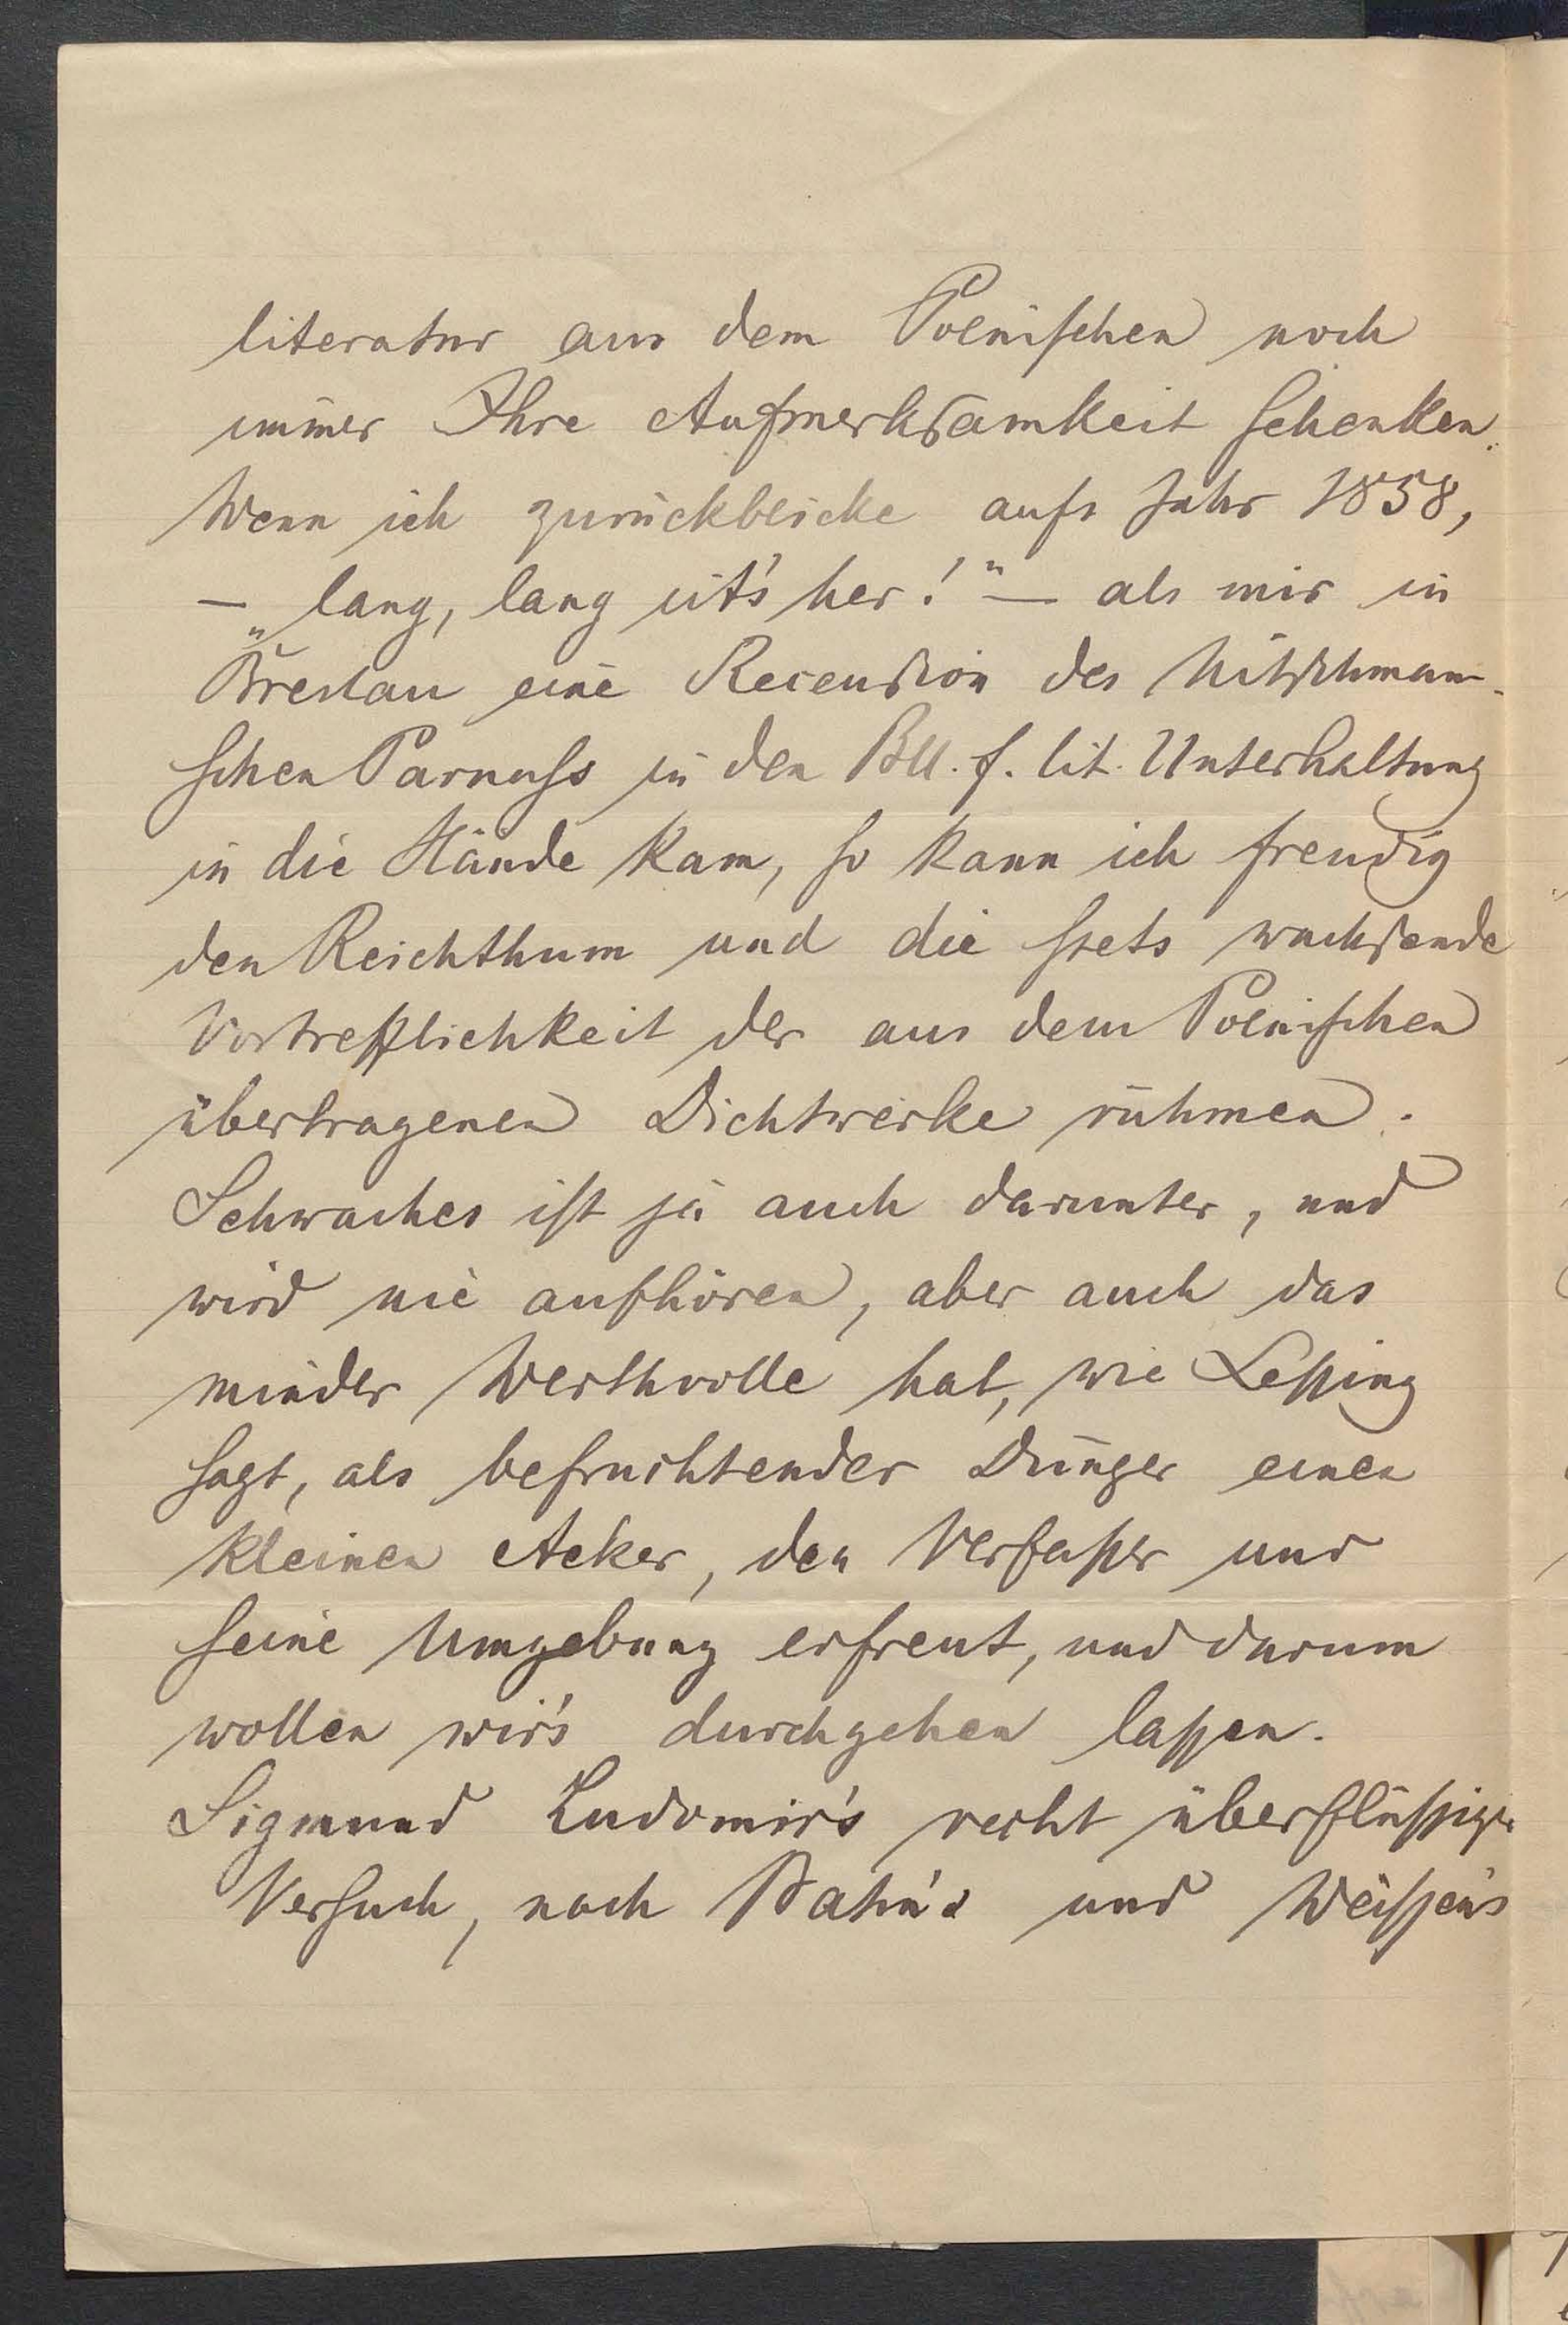 literatur aus dem Polnischen noch
immer Ihre Aufmerksamkeit schenken.
Wenn ich zurückblicke aufs Jahr 1858,
— „lang, lang ist's her!“ — als mir in
Breslau eine Recension des Nitschmann-
schen Parnass in den Bll. f. lit. Unterhaltung
in die Hände kam, so kann ich freudig
den Reichthum und die stets wachsende
Vortrefflichkeit der aus dem Polnischen
übertragenen Dichtwerke rühmen.
Schwaches ist ja auch darunter, und
wird nie aufhören, aber auch das
minder Werthvolle hat, wie Lessing
sagt, als befruchtender Dünger einen
kleinen Acker, den Verfasser und
seine Umgebung erfreut, und darum
wollen wir's durchgehen lassen.
Sigmund Ludomir's recht überflüssiger
Versuch, nach und Weissen's